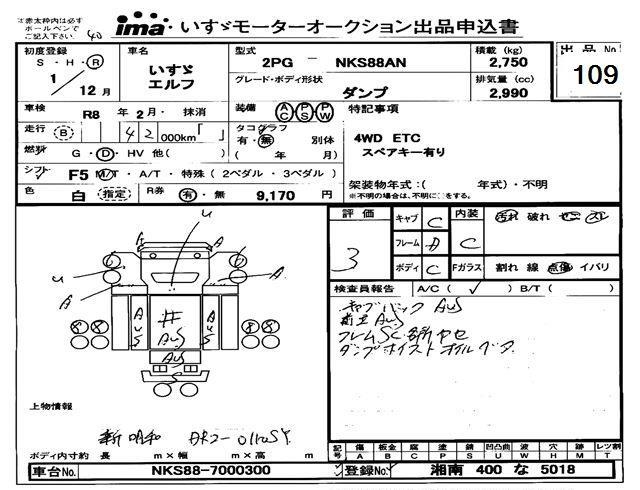 ※赤太枠内は必ず
ボールペンで
ご記入下さい。 40
ima いすゞモーターオークション出品申込書
出品No.
109
初度登録
S・H・R
1/12月
車名
いすゞ
エルフ
型式
2PG - NKS88AN
積載 (kg)
2,750
グレード・ボディ形状
ダンプ
排気量 (cc)
2,990
車検 R8 年 2月・ 抹消
装備 AC PS PW
特記事項
走行 B 42 000km「 」
タコグラフ
有・無 別体
( 年 月)
4WD ETC
スペアキー有り
燃料 G・D・HV 他( )
シフト F5 M/T・A/T・特殊(2ペダル・3ペダル)
架装物年式:( 年式)・不明
※不明の場合は、不明に○をする。
色 白 指定 R券 有・無 9,170 円
評価
3
キャブ C
フレーム A
ボディ C
内装 C
汚れ 破れ
Fガラス 割れ 線 点傷 イバリ
検査員報告 A/C( ✓ ) B/T( )
キャブバック AUS
荷台 AUS
フレム SC
ダンプホイスト オイル
u
A A
u u
A A
8 8 AUS # AUS 8 8
AUS
AUS
SC
上物情報
新明和
ボディ内寸約 長 m×幅 m×高 m
記号 傷 板金 腐 塗 錆 凹凸曲 波 穴 跡 レツ割
A B C P S U W H M T
車台No. NKS88-7000300
登録No. 湘南 400 な 5018